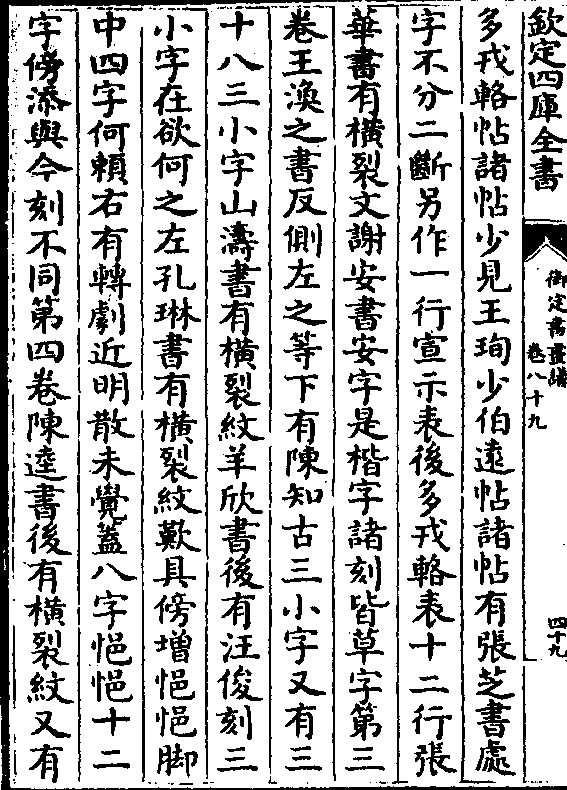 欽定四庫全書
御定書畫譜
卷八十九
四十九
多戎輅帖諸帖少見王珣少伯遠帖諸帖有張芝書處
字不分二斷另作一行宣示表後多戎輅表十二行張
華書有橫裂文謝安書安字是楷字諸刻皆草字第三
卷王渙之書反側左之等下有陳知古三小字又有三
十八三小字山濤書有橫裂紋羊欣書後有汪俊刻三
小字在欲何之左孔琳書有橫裂紋歎具傍增悒悒脚
中四字何賴右有轉劇近明散未覺蓋八字悒悒十二
字傍添與今刻不同第四卷陳逵書後有橫裂紋又有